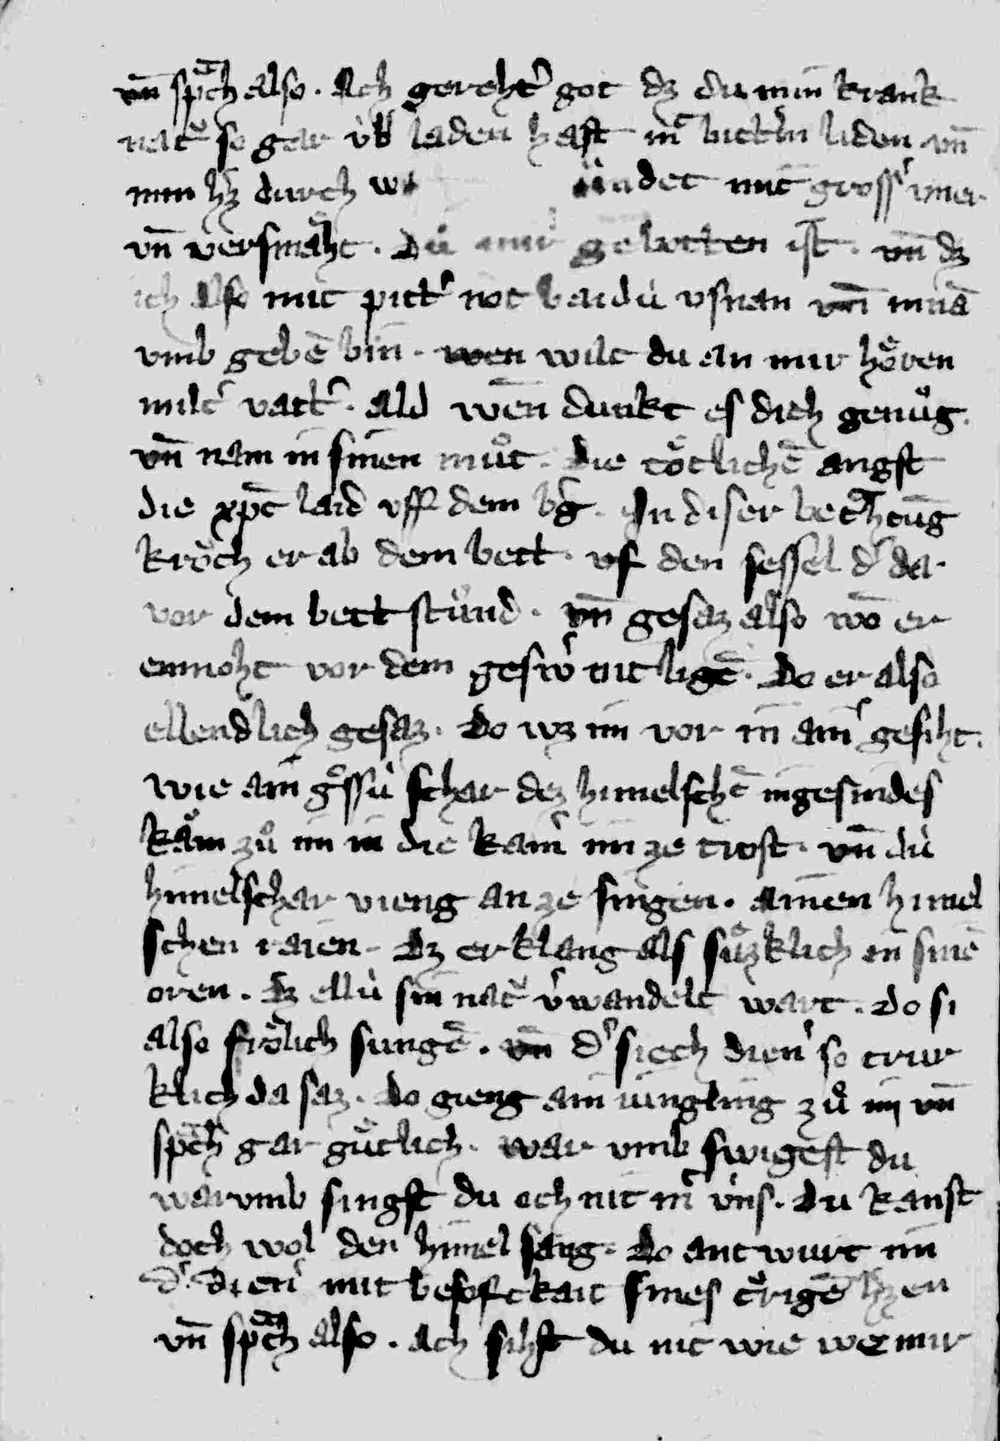 vn̄ spͣch also. Ach gerehtˀ got dz du min krank
natˀ so gar v̍b laden hast mit bittˀm liden vn̄
min hˀz durch w ündet mit grossˀ vner
vn̄ versmäht. Dú mir gebotten ist. vn̄ dz
ich also mit pittˀ not baidú vsnan vn̄ innā
vmb gebē bin. wen wilt du an mir hören
miltˀ vattˀ. ald wen dunkt es dich genůg.
vn̄ nam in sinen můt. die tötlichē angst
die xp̄c laid vff dem bˀg. In diser betͣhtūg
kroͮch er ab dem bett. vf den sessel dˀ da
vor dem bett stůnd. vn̄ gesaz also wō er
enmoht vor dem geswˀ nit ligē. Do er also
ellendlich gesaz. do wz im vor in ainˀ gesiht.
wie ain gͦssú schar dez himelschē ingesindes
käm zů im in die kamˀ im ze trost. vn̄ dú
himelschar vieng an ze singen. ainen himel
schen raien. Dz erklang als süzklich in sinē
oren. Dz ellú sin natˀ v̍wandelt wart. do si
also frölich sungē. vn̄ dˀ siech dienˀ so trur
klich da saz. do gieng ain iungling zů im vn̄
spͣch gar gütlich. war vmb swigest du
warvmb singst du och nit mit v́ns. du kanst
doch wol den himel sang. Do antwurt im
dˀ dienˀ mit besofckait sines trˀigē hˀzen
vn̄ spͣch also. ach sihst du nit wie we mir